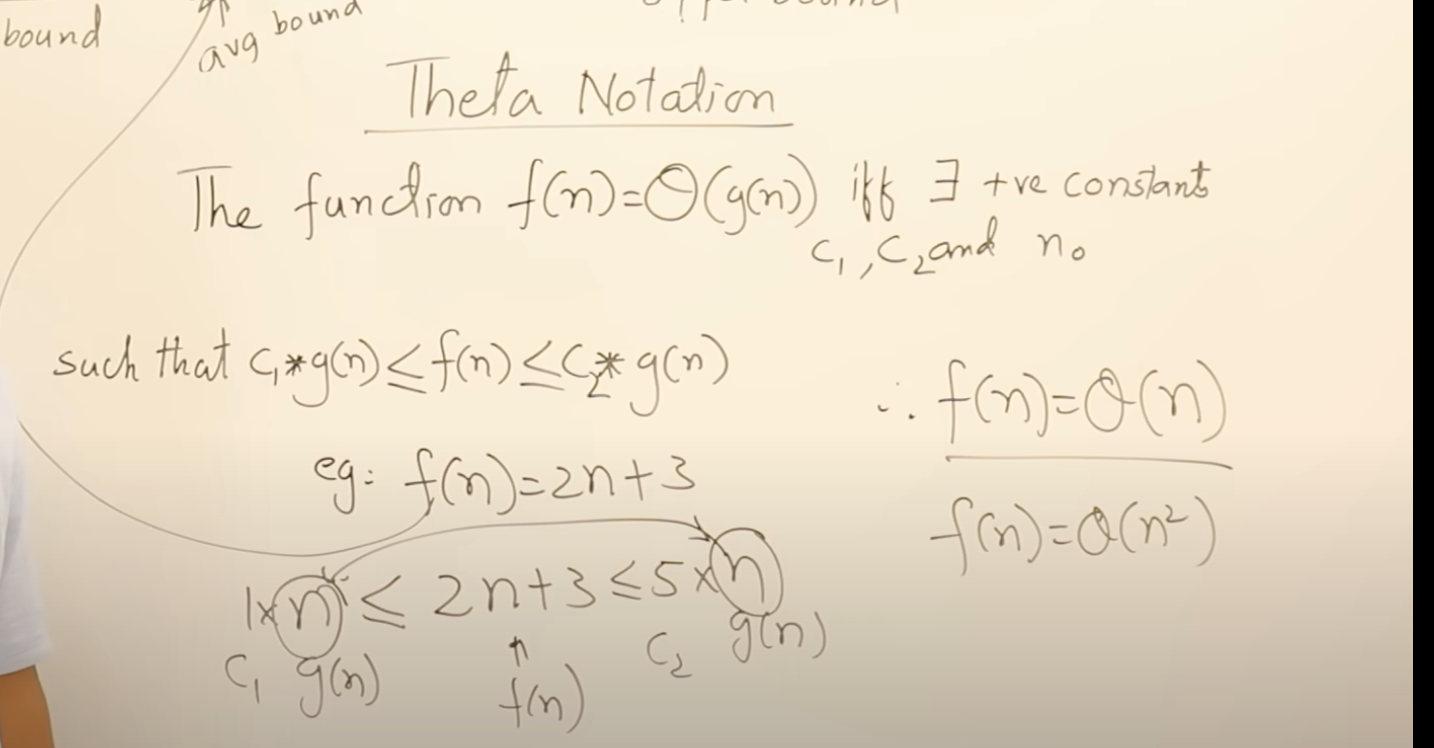 bound
avg bound
Theta Notation
The function f(n)=Θ(g(n)) iff ∃ +ve constants
c₁, c₂ and n₀
such that c₁*g(n)≤f(n)≤c₂*g(n)
∴ f(n)=Θ(n)
eg: f(n)=2n+3
f(n)=Θ(n²)
1×n ≤ 2n+3 ≤5×n
c₁ g(n) f(n) c₂ g(n)